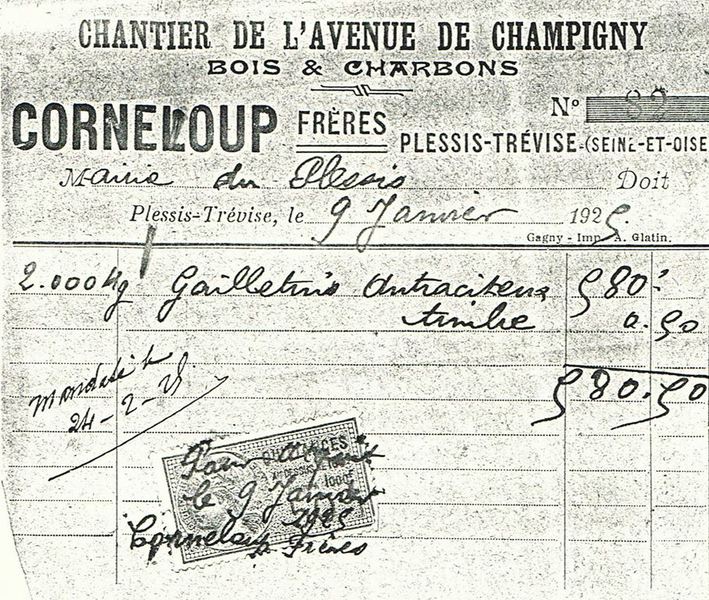 CHANTIER DE L'AVENUE DE CHAMPIGNY
BOIS & CHARBONS
CORNELOUP FRÈRES
N° 82
PLESSIS-TRÉVISE-(SEINE-ET-OISE
Mairie du Plessis Doit
Plessis-Trévise, le 9 Janvier 1925
Gagny - Imp. A. Glatin.
2.000 Kg Gailletins Antraciteux 580.
timbre 0.50
580.50
Mandaté le
24-2-25
QUITTANCES
Pour acquis
le 9 Janvier
1925
Corneloup
Frères